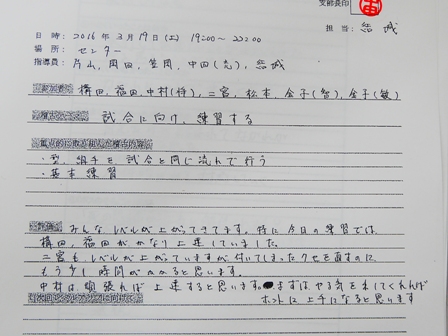 支部長印
担当: 結城
日時: 2016年3月19日(土) 19:00〜22:00
場所: センター
指導員: 片山, 岡田, 笠岡, 中田(先), 結城
構田, 福田, 中村(将), 二宮, 松本, 金子(智), 金子(敏)
試合に向け, 練習する
・型, 組手を試合と同じ流れで行う
・基本練習
みんなレベルが上がってきてます。特に今日の練習では
構田, 福田がかなり上達していました。
二宮もレベルが上がっていますが付いてしまったクセを直すのに
もう少し時間がかかると思います。
中村は頑張れば上達すると思います。まずはやる気を出してくれれば
ホントに上手になると思います